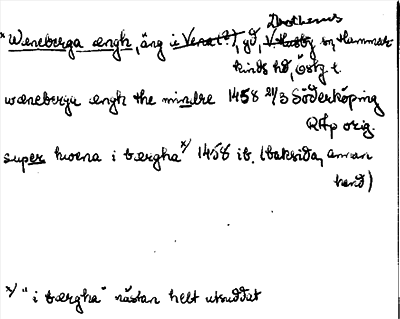 Drothems
*Weneberga ængh, äng i Vena(?), gd, V Husby sn, Hammar
kinds hd, Östg l.
wæneberge ængh the mindre 1458 21/3 Söderköping
RAp orig.
super hwena i bergha x/ 1458 ib. (baksida, annan
hand)
x/ "i bergha" nästan helt utsuddat